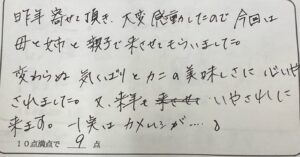 昨年 寄せて頂き、大変感動したので今回は
母と姉と親子で来させてもらいました。
変わらぬ気くばりとカニの美味しさに心いや
されました。又、来年も いやされに
来ます。 実はカメムシが....。
10点満点で 9 点